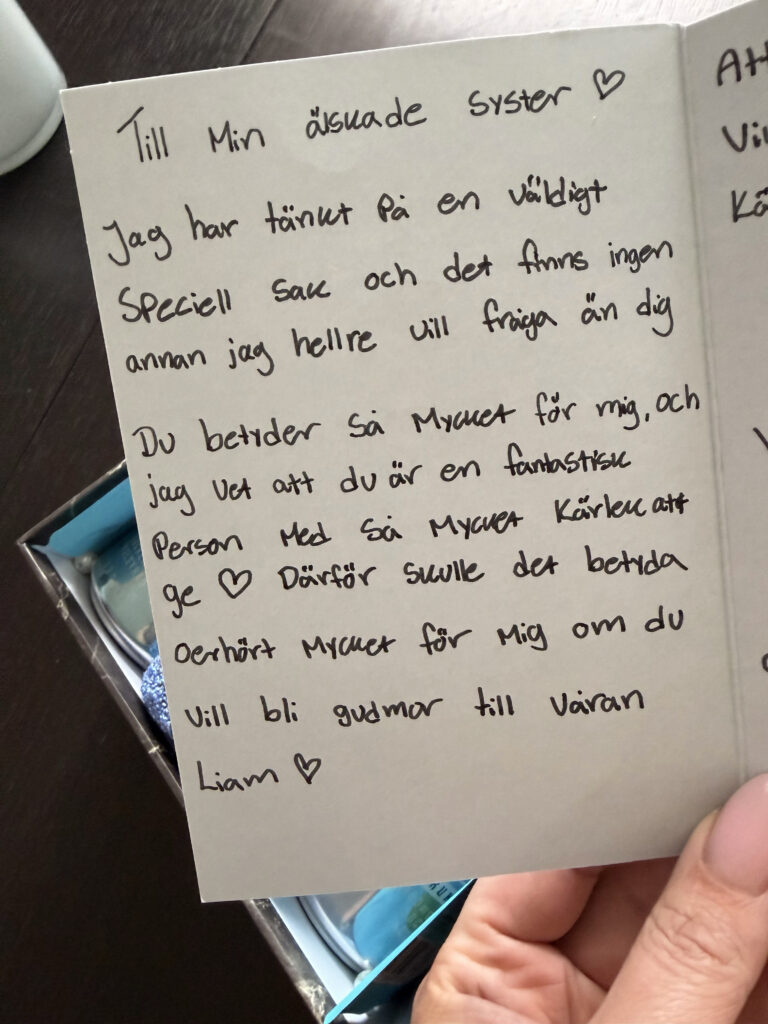 Till Min älskade syster ♡
Jag har tänkt på en väldigt
Speciell sak och det finns ingen
annan jag hellre vill fråga än dig
Du betyder så Mycket för mig, och
jag vet att du är en fantastisk
Person Med så Mycket Kärlek att
ge ♡ Därför skulle det betyda
oerhört Mycket för Mig om du
vill bli gudmor till våran
Liam ♡
Att